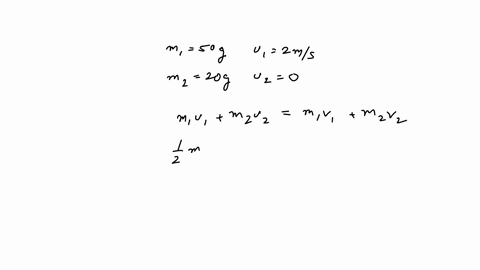 m₁ = 50g u₁ = 2m/s
m₂ = 20g u₂ = 0
m₁u₁ + m₂u₂ = m₁v₁ + m₂v₂
1/2 m